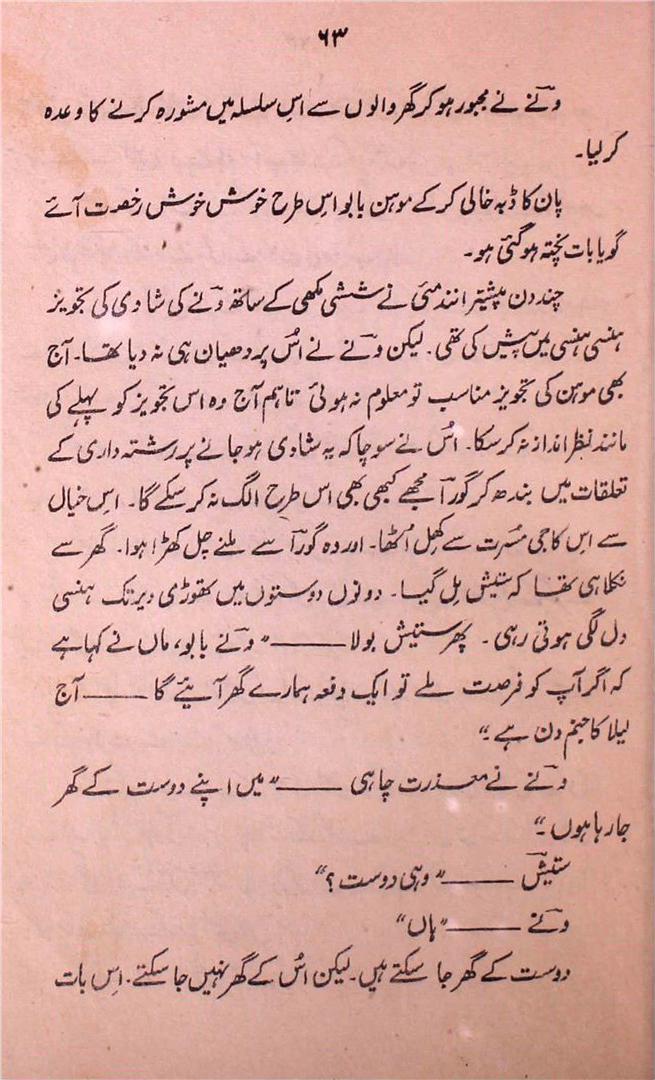 ۶۳
ونے نے مجبور ہو کر گھر والوں سے اس سلسلہ میں مشورہ کرنے کا وعدہ
کر لیا۔
پان کا ڈبہ خالی کر کے موہن بابو اس طرح خوش خوش رخصت آئے
گویا بات پختہ ہو گئی ہو۔
چند دن پیشتر انند مئی نے ششی مکھی کے ساتھ ونے کی شادی کی تجویز
ہنسی ہنسی میں پیش کی تھی۔ لیکن ونے نے اُس پر دھیان ہی نہ دیا تھا۔ آج
بھی موہن کی تجویز مناسب تو معلوم نہ ہوئی تاہم آج وہ اس تجویز کو پہلے کی
مانند نظر انداز نہ کر سکا۔ اُس نے سوچا کہ یہ شادی ہو جانے پر رشتہ داری کے
تعلقات میں بندھ کر گورا مجھے کبھی بھی اس طرح الگ نہ کر سکے گا۔ اس خیال
سے اس کا جی مسّرت سے کھل اُٹھا۔ اور وہ گورا سے ملنے چل کھڑا ہوا۔ گھر سے
نکلا ہی تھا کہ ستیش مل گیا۔ دونوں دوستوں میں تھوڑی دیر تک ہنسی
دل لگی ہوتی رہی۔ پھر ستیش بولا ——— "ونے بابو، ماں نے کہا ہے
کہ اگر آپ کو فرصت ملے تو ایک دفعہ ہمارے گھر آیئے گا ——— آج
لیلا کا جنم دن ہے۔"
ونے نے معذرت چاہی ——— "میں اپنے دوست کے گھر
جا رہا ہوں۔"
ستیش ——— "وہی دوست؟"
ونے ——— "ہاں"
دوست کے گھر جا سکتے ہیں۔ لیکن اُس کے گھر نہیں جا سکتے۔ اِس بات